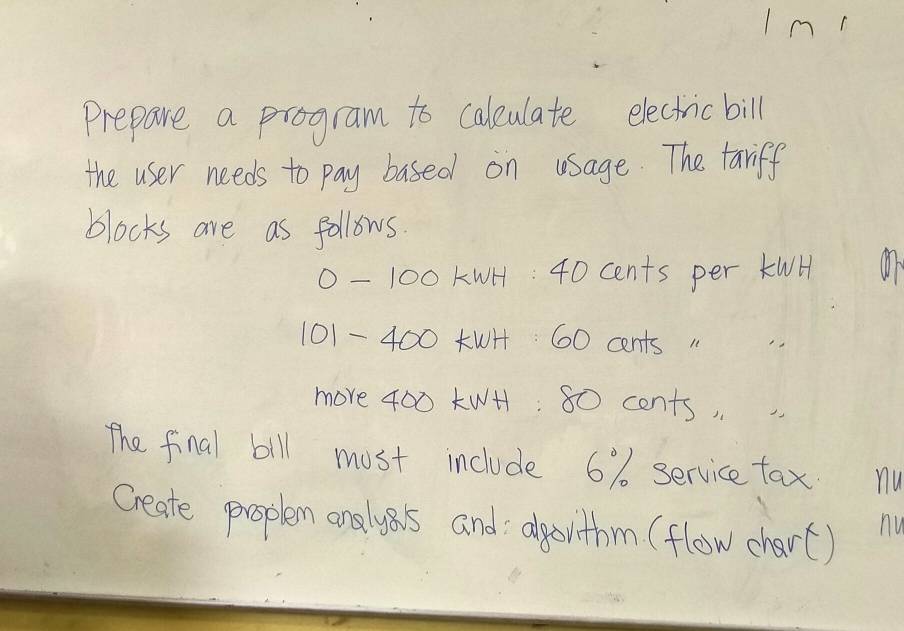 Prepare a program to calculate electric bill
the user needs to pay based on usage. The tariff
blocks are as follows.
0 - 100 kWH : 40 cents per kWH
101 - 400 kWH : 60 cents " "
more 400 kWH : 80 cents " "
The final bill must include 6% service tax. nu
Create proplem analysis and : algorithm. (flow chart) nu